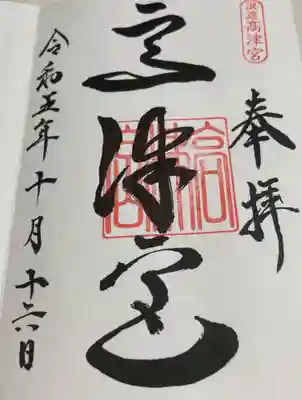 浪速高津宮
奉拝
高津宮
令和五年十月十六日